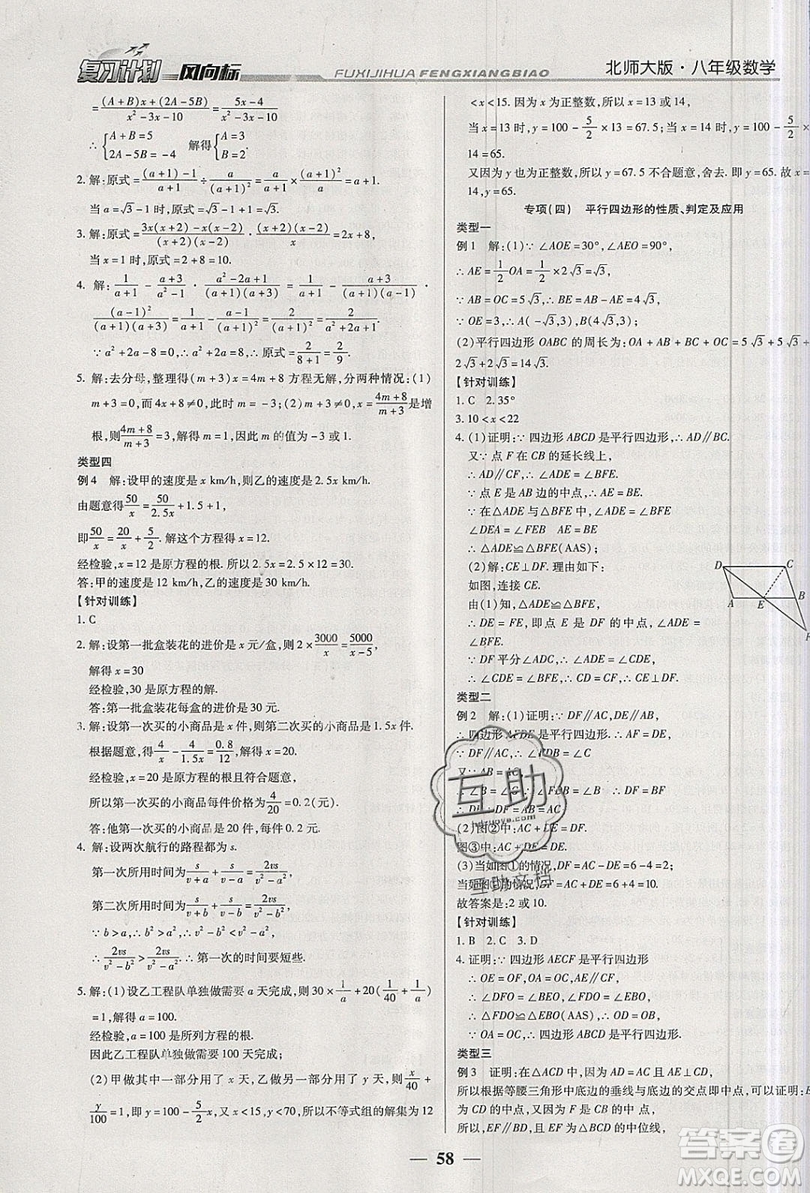 复习计划 风向标 FUXIJIHUA FENGXIANGBIAO 北师大版·八年级数学
=\frac{(A+B)x+(2A-5B)}{x²-3x-10}=\frac{5x-4}{x²-3x-10}
∴{A+B=5 2A-5B=-4 解得{A=3 B=2
2. 解:原式=\frac{(a+1)-1}{a+1}÷\frac{a}{(a+1)²}=\frac{a}{a+1}·\frac{(a+1)²}{a}=a+1.
当 a=√3-1 时,原式=√3-1+1=√3.
3. 解:原式=\frac{3x(x+2)-x(x-2)}{(x-2)(x+2)}·\frac{(x+2)(x-2)}{x}=2x+8.
当 x=1 时,原式=2+8=10.
4. 解:\frac{1}{a+1}-\frac{a+3}{a²-1}·\frac{a²-2a+1}{(a+1)(a+3)}=\frac{1}{a+1}-\frac{a+3}{(a+1)(a-1)}·
\frac{(a-1)²}{(a+1)(a+3)}=\frac{1}{a+1}-\frac{a-1}{(a+1)²}=\frac{2}{(a+1)²}
∵a²+2a-8=0,∴a²+2a=8,∴原式=\frac{2}{8+1}=\frac{2}{9}.
5. 解:去分母,整理得(m+3)x=4m+8 方程无解,分两种情况:(1)
m+3=0,而 4m+8≠0,此时 m=-3;(2)m+3≠0,x=\frac{4m+8}{m+3}是增
根,则\frac{4m+8}{m+3}=3,解得 m=1,因此 m 的值为-3 或 1.
类型四
例4 解:设甲的速度是 x km/h,则乙的速度是 2.5x km/h.
由题意得\frac{50}{x}=\frac{50}{2.5x}+1.5+1,
即\frac{50}{x}=\frac{20}{x}+\frac{5}{2}. 解这个方程得 x=12.
经检验,x=12 是原方程的根. 所以 2.5x=2.5×12=30.
答:甲的速度是 12 km/h,乙的速度是 30 km/h.
【针对训练】
1. C
2. 解:设第一批盒装花的进价是 x 元/盒,则 2×\frac{3000}{x}=\frac{5000}{x-5},
解得 x=30
经检验,30 是原方程的解.
答:第一批盒装花每盒的进价是 30 元.
3. 解:设第一次买的小商品是 x 件,则第二次买的小商品是 1.5x 件.
根据题意,得\frac{4}{x}-\frac{4}{1.5x}=\frac{0.8}{12},解得 x=20.
经检验,x=20 是原方程的根且符合题意.
所以第一次买的小商品每件价格为\frac{4}{20}=0.2(元).
答:他第一次买的小商品是 20 件,每件是 0.2 元.
4. 解:设两次航行的路程都为 s.
第一次所用时间为\frac{s}{v}+\frac{s}{v}=\frac{2vs}{v²}
第二次所用时间为\frac{s}{v+b}+\frac{s}{v-b}=\frac{2vs}{v²-b²}
∵b>a,∴b²>a²,∴v²-b²<v²-a²
∴\frac{2vs}{v²-b²}>\frac{2vs}{v²-a²}
∴第一次的时间要短些.
5. 解:(1)设乙工程队单独做需要 a 天完成,则 30×\frac{1}{a}+20(\frac{1}{40}+\frac{1}{a})
=1,解得 a=100.
经检验,a=100 是所列方程的根.
因此乙工程队单独做需要 100 天完成;
(2)甲做其中一部分用了 x 天,乙做另一部分用了 y 天,则\frac{x}{40}+
\frac{y}{100}=1,即 y=100-\frac{5}{2}x,又 x<15,y<70,所以不等式组的解集为 12
<x<15. 因为 x 为正整数,所以 x=13 或 14,
当 x=13 时,y=100-\frac{5}{2}×13=67.5;当 x=14 时,y=100-\frac{5}{2}×
14=65.
又因为 y 也为正整数,所以 y=67.5 不合题意,舍去. 即 x=
14,y=65.
专项(四) 平行四边形的性质、判定及应用
类型一
例1 解:(1)∵∠AOE=30°,∠AEO=90°,
∴AE=\frac{1}{2}OA=\frac{1}{2}×2√3=√3,
∵AO=2√3,AE=√3
∵OE=3,∴A(-√3,3)
(2)平行四边形 OABC 的周长为:OA+AB+BC+OC=2√3+5√3+
2√3+5√3=14√3.
【针对训练】
1. C 2. 35°
3. 10<x<22
4. (1)证明:∵四边形 ABCD 是平行四边形,∴AD∥BC.
又∵点 F 在 CB 的延长线上,
∴AD∥CF,∴∠ADE=∠BFE.
∵点 E 是 AB 边的中点,∴AE=BE.
在△ADE 与△BFE 中,∵∠ADE=∠BFE,
∠DEA=∠FEB AE=BE,
∴△ADE≌△BFE(AAS);
(2)解:CE⊥DF. 理由如下:
如图,连接 CE.
由(1)知,△ADE≌△BFE,
∴DE=FE,即点 E 是 DF 的中点,∠ADE=∠BFE.
∵DF 平分∠ADC,∴∠ADE=∠CDE,
∴∠CDE=∠BFE,∴CD=CF,∴CE⊥DF.
D C A E B
类型二
例2 解:(1)证明:∵DF∥AC,DE∥AB,
∴四边形 AFDE 是平行四边形,∴AF=DE,
∵DF∥AC,∴∠FDB=∠C
又∵AB=AC,∴∠B=∠C,
∴∠FDB=∠B,∴DF=BF
∴DE+DF=AB=AC;
(2)图②中:AC+DE=DF.
图③中:AC+DF=DE.
(3)当如图①的情况,DF=AC-DE=6-4=2;
当如图②的情况,DF=AC+DE=6+4=10.
故答案是:2 或 10.
【针对训练】
1. B 2. C 3. D
4. 证明:∵四边形 AECF 是平行四边形
∴OE=OF,OA=OC,AE∥CF,
∴∠DFO=∠BEO,∠FDO=∠EBO,
∴△FDO≌△EBO,∴OD=OB,
∵OA=OC,∴四边形 ABCD 是平行四边形
类型三
例3 证明:在△ACD 中,因为 AD=AC,AE⊥CD,
所以根据等腰三角形中底边的垂线与底边的交点即中点,可以得出,E
为 CD 的中点,又因为 F 是 CB 的中点,
所以,EF∥BD,且 EF 为△BCD 的中位线,
58
互助
互助文档
答案圈
MXQE.COM